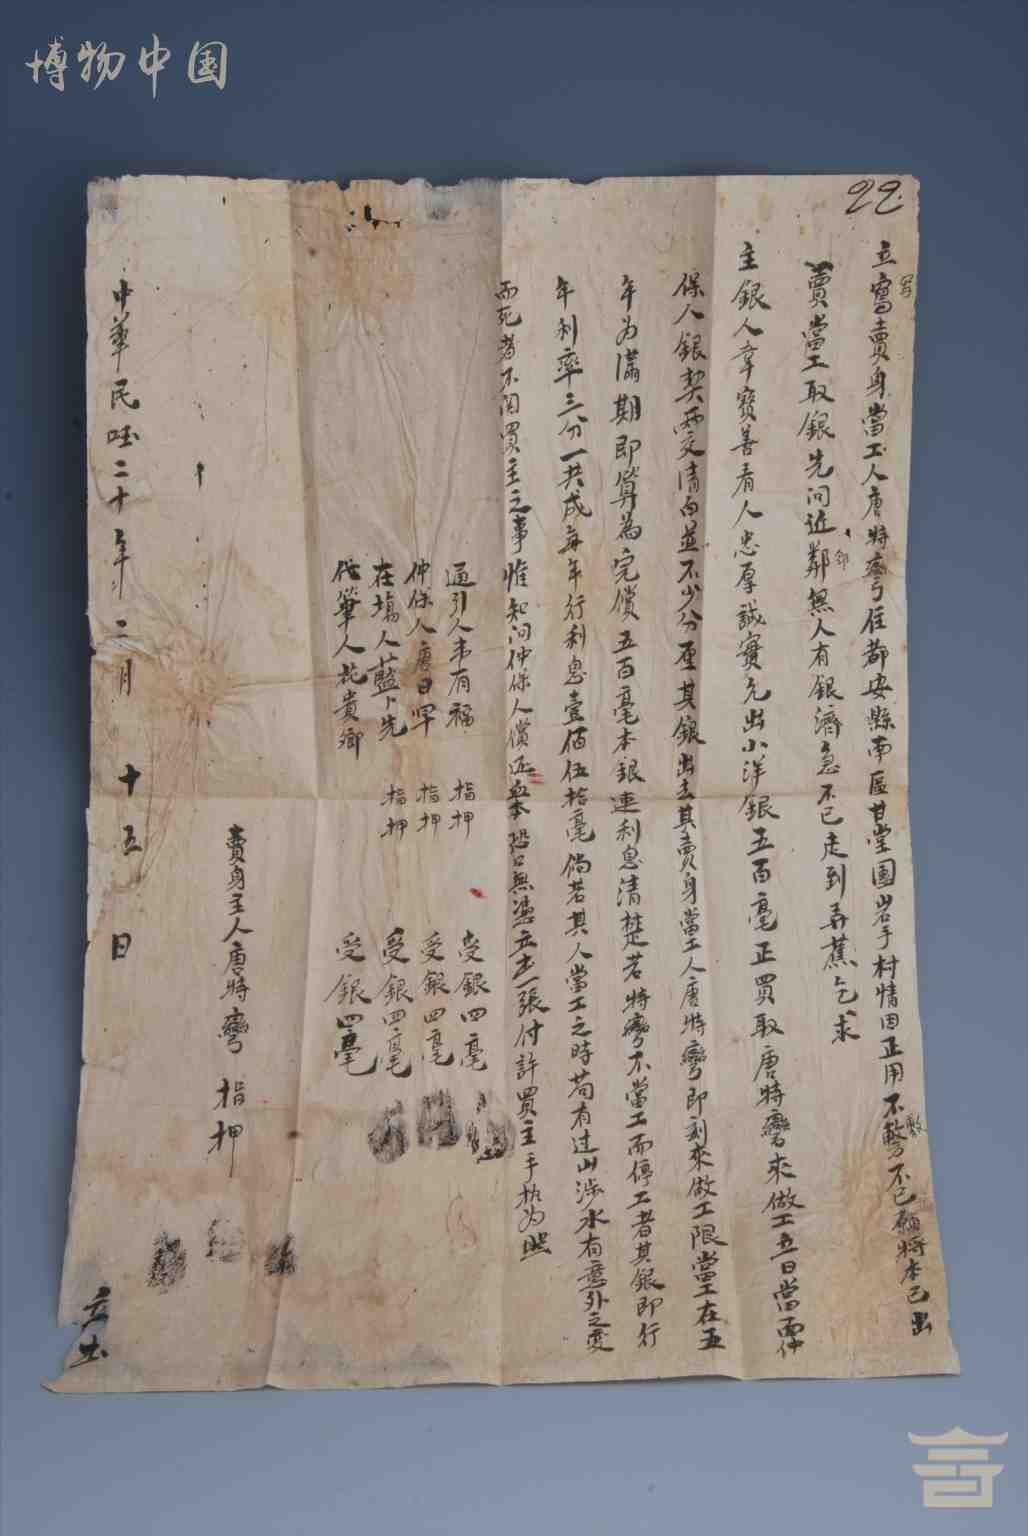 博物中国
22.
立寫賣身當工人唐特彎住都安縣南區甘堂團岩手村情因正用不敷不已願將本己出
賣當工取銀先问近鄰無人有銀濟急不已走到弄蕉乞求
主銀人韋寳善看人忠厚誠實允出小洋銀五百毫正買取唐特彎來做工五日當面仲
保人銀契两交清白並不少分厘其銀出去其賣身當工人唐特彎即刻來做工限當工在五
年为滿期即算為完償五百毫本銀連利息清楚若特彎不當工而停工者其銀即行
年利率三分一共成每年行利息壹佰伍拾毫倘若其人當工之時苟有过山涉水有意外之变
而死者不関買主之事惟知问仲保人償还血本恐口無憑立出一張付許買主手执为照
通引人韦有福 指押 受銀四毫
仲保人唐日罕 指押 受銀四毫
在塲人藍卜先 指押 受銀四毫
代筆人 貴鄉 受銀四毫
賣身主人唐特彎 指押
中華民国二十年二月十五日 立出